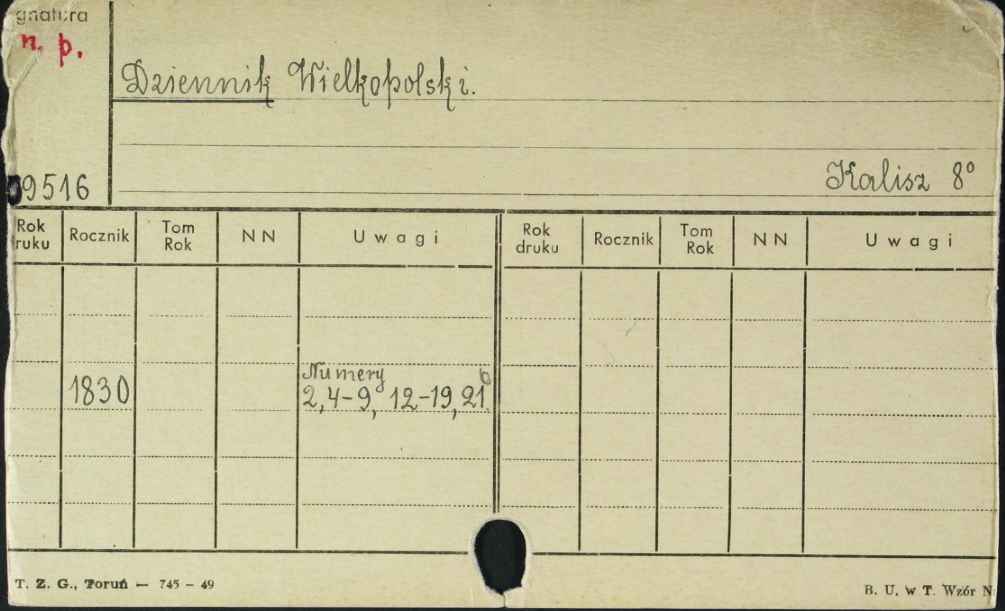 gnatura
n. p.
Dziennik Wielkopolski.
09516
Kalisz 8°
Rok druku Rocznik Tom Rok NN Uwagi Rok druku Rocznik Tom Rok NN Uwagi
Numery
1830 2, 4-9, 12-19, 21
T. Z. G., Toruń — 745 - 49
B. U. w T. Wzór N